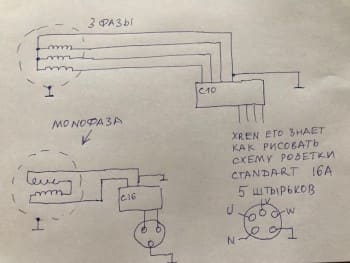 3 ФАЗЫ
C10
МОНОФАЗА
C16
XREN ЕГО ЗНАЕТ
КАК РИСОВАТЬ
СХЕМУ РОЗЕТКИ
СТANDART 16A
5 ШТЫРЬКОВ
V
U
W
N